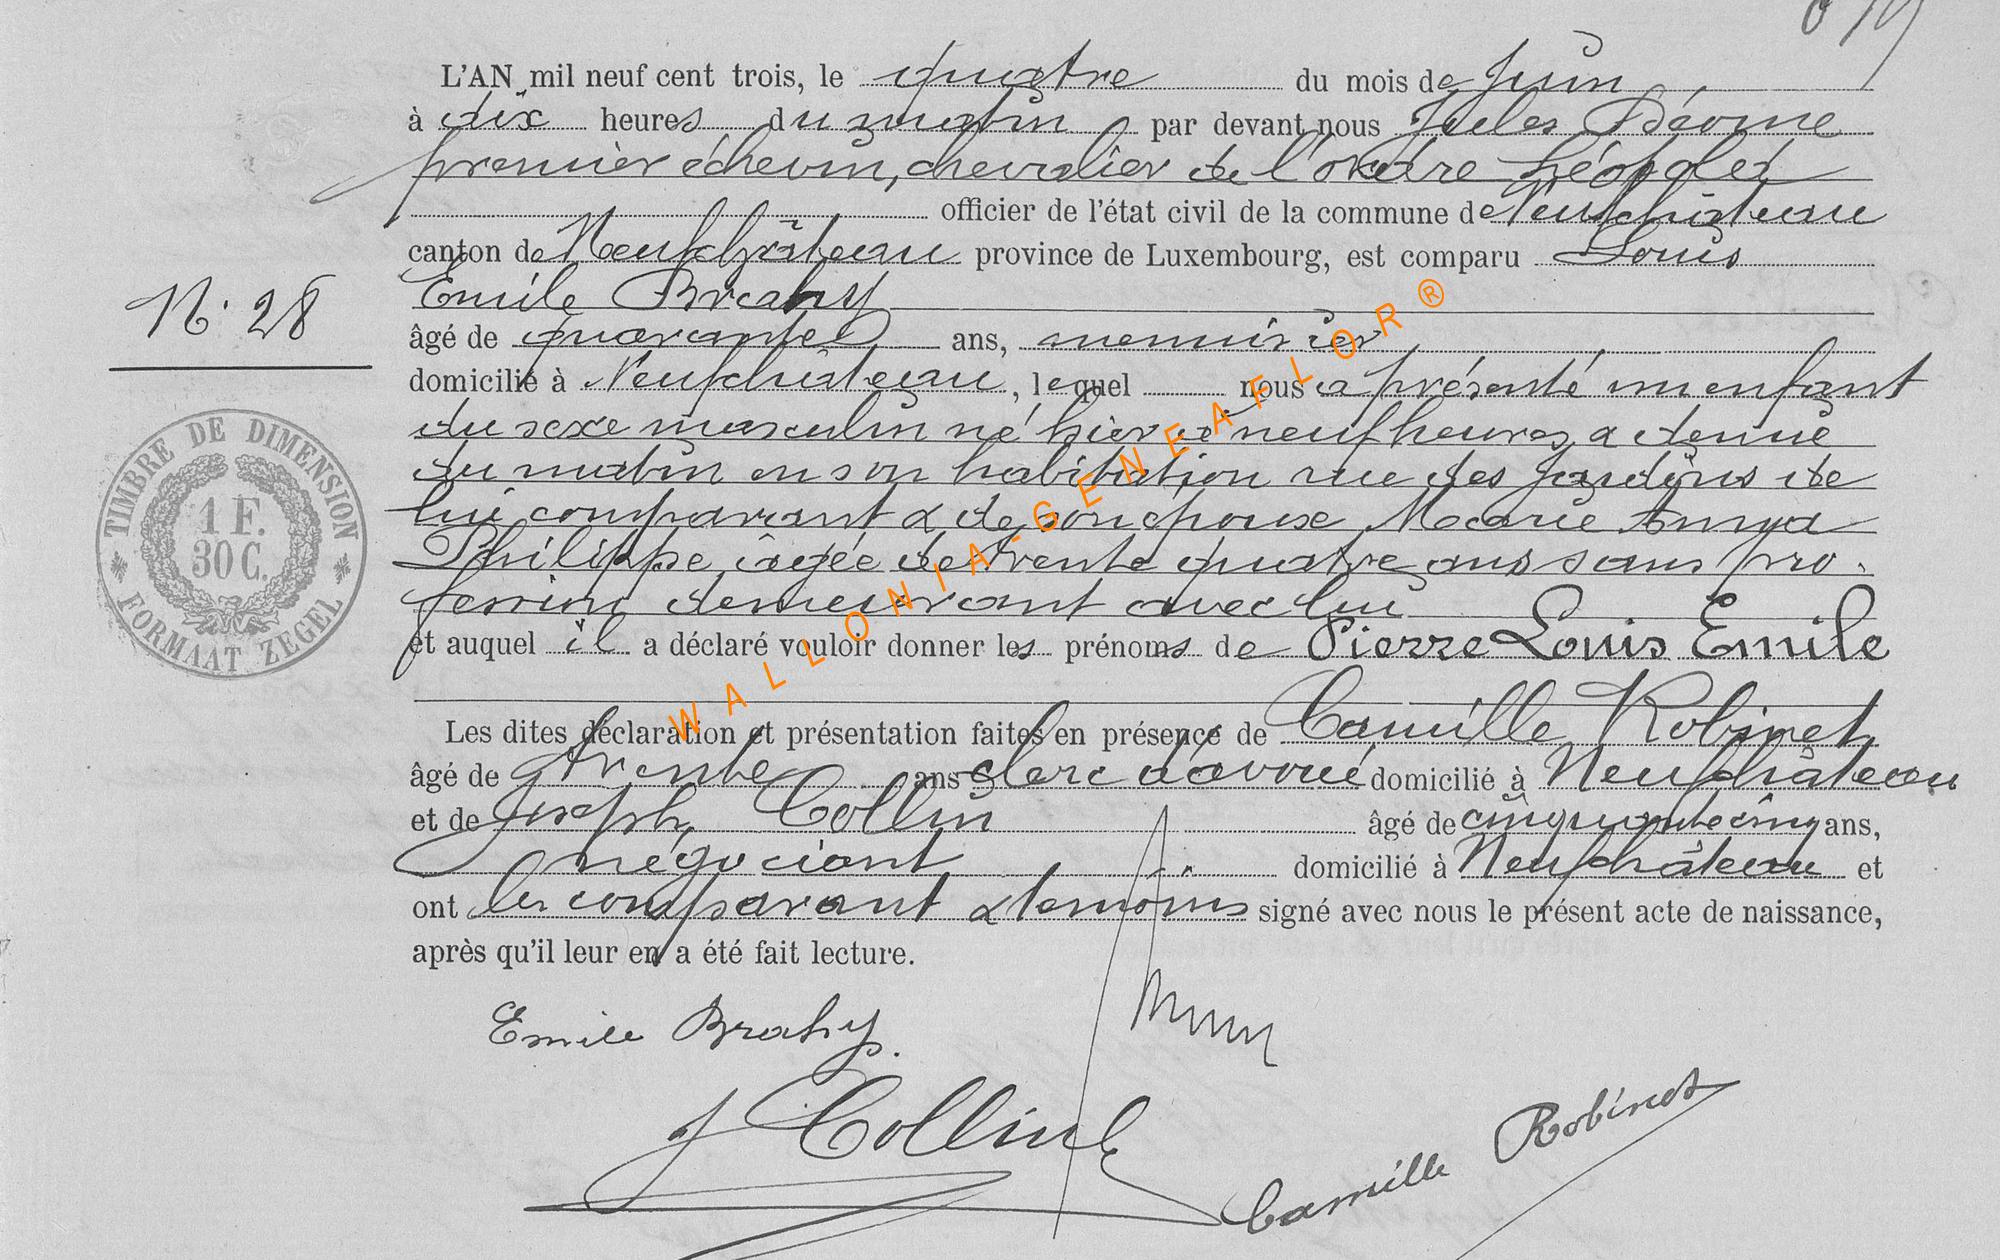 L'AN mil neuf cent trois, le quatre du mois de Juin
à dix heures du matin par devant nous Jules
premier échevin, chevalier de l'ordre Léopold
officier de l'état civil de la commune de Neufchâteau
canton de Neufchâteau province de Luxembourg, est comparu Louis
Emile Brahy
N. 28
âgé de quarante ans, menuisier
domicilié à Neufchâteau, lequel nous a présenté un enfant
du sexe masculin né hier à neuf heures & demie
du matin en son habitation rue des Jardins de
lui comparant & de son épouse Marie
Philippe âgée de trente quatre ans sans pro-
fession demeurant avec lui
et auquel il a déclaré vouloir donner les prénoms de Pierre Louis Emile
Les dites déclaration et présentation faites en présence de Camille Robinet
âgé de trente ans clerc d'avoué domicilié à Neufchâteau
et de Joseph Collin âgé de cinquante cinq ans,
négociant domicilié à Neufchâteau et
ont les comparant & témoins signé avec nous le présent acte de naissance,
après qu'il leur en a été fait lecture.
Emile Brahy.
J Collin
Camille Robinet
TIMBRE DE DIMENSION
1 F.
30 C.
FORMAAT ZEGEL
WALLONIA-GENEAFLOR®